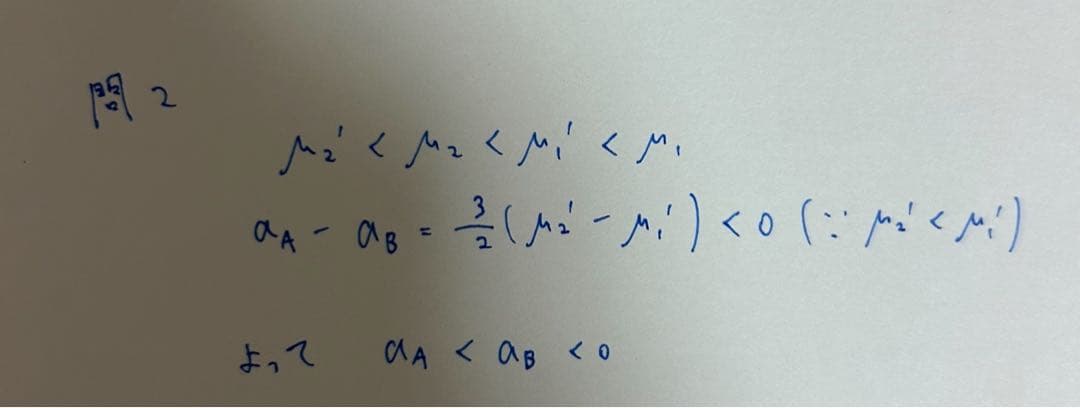 問2
μ₂' < μ₂ < μ₁' < μ₁
a_A - a_B = 3/2 (μ₂' - μ₁') < 0 (∵ μ₂' < μ₁')
よって a_A < a_B < 0